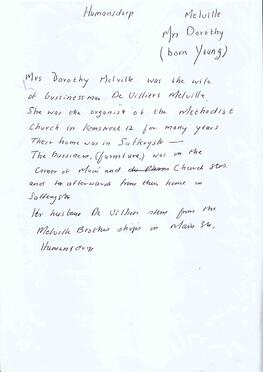 Humansdorp
Melville
Mrs Dorothy
(born Young)
Mrs Dorothy Melville was the wife
of bussinessman De Villiers Melville.
She was the organist of the Methodist
Church in 12 for many years
Their home was in
The bussiness, (furniture,) was on the
corner of Main and Church Str.
and afterwards from their home in
Her husban De Villiers stem from the
Melville Brothers shops in Main Str,
Humansdorp